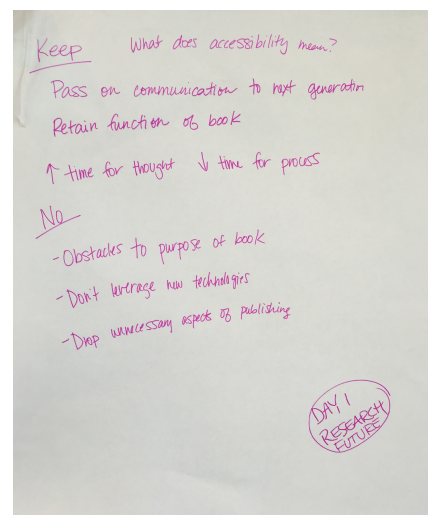 Keep What does accessibility mean?
Pass on communication to next generation
Retain function of book
↑ time for thought ↓ time for process
No
- Obstacles to purpose of book
- Don't leverage new technologies
- Drop unnecessary aspects of publishing
DAY 1
RESEARCH
FUTURE